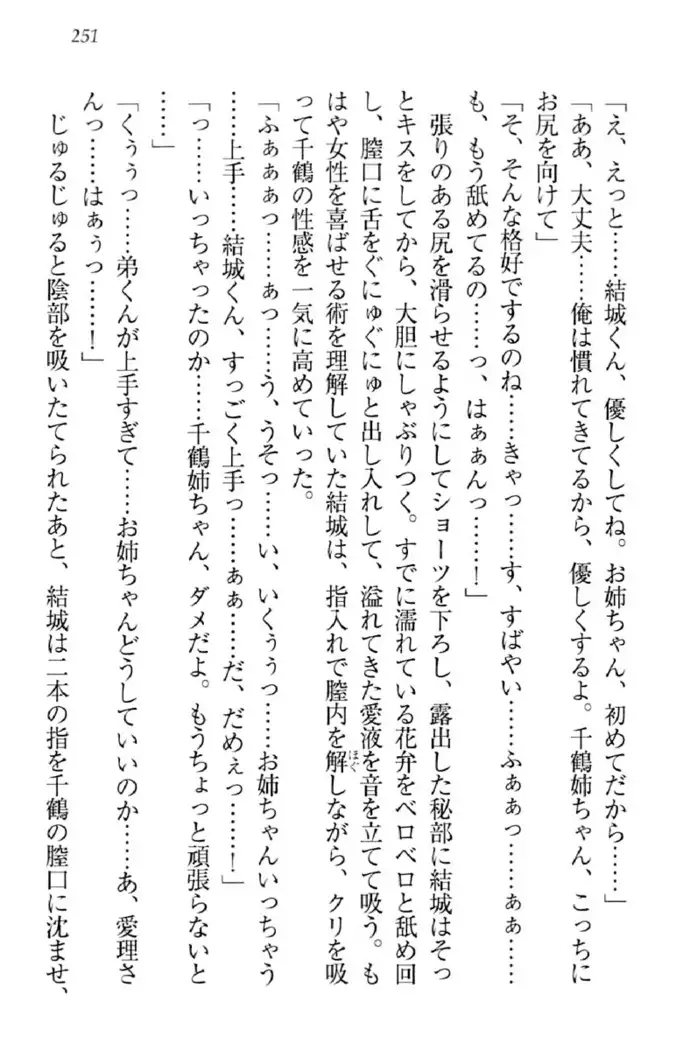 251
「え、えっと……結城くん、優しくしてね。お姉ちゃん、初めてだから……」
「ああ、大丈夫……俺は慣れてきてるから、優しくするよ。千鶴姉ちゃん、こっちに
お尻を向けて」
「そ、そんな格好でするのね……きゃっ……す、すばやい……ふぁぁっ……ぁぁ……
も、もう舐めてるの……っ、はぁぁんっ……！」
張りのある尻を滑らせるようにしてショーツを下ろし、露出した秘部に結城はそっ
とキスをしてから、大胆にしゃぶりつく。すでに濡れている花弁をベロベロと舐め回
し、膣口に舌をぐにゅぐにゅと出し入れして、溢れてきた愛液を音を立てて吸う。も
はや女性を喜ばせる術を理解していた結城は、指入れで膣内を解しながら、クリを吸
ほぐ
って千鶴の性感を一気に高めていった。
「ふぁぁぁっ……ぁっ……う、うそっ……い、いくぅぅっ……お姉ちゃんいっちゃう
……上手……結城くん、すっごく上手っ……ぁぁ……だ、だめぇっ……！」
「っ……いっちゃったのか……千鶴姉ちゃん、ダメだよ。もうちょっと頑張らないと
……」
「くぅぅっ……弟くんが上手すぎて……お姉ちゃんどうしていいのか……あ、愛理さ
んっ……はぁぅっ……！」
じゅるじゅると陰部を吸いたてられたあと、結城は二本の指を千鶴の膣口に沈ませ、